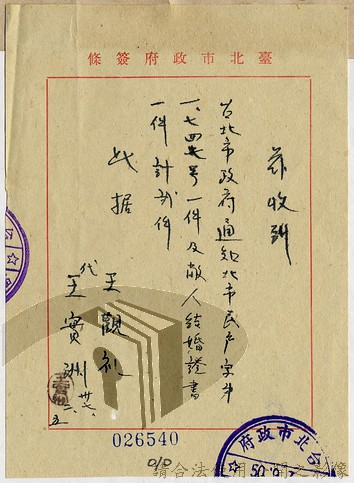 臺北市政府簽條
茲收到
台北市政府通知北市民戶字第
一、七四七号一件及敝人結婚證書
一件計弍件
此据
王觀礼
代 王寶洲 卅七、二、五
台北市政府
026540
0/0
請合法使用公開之影像